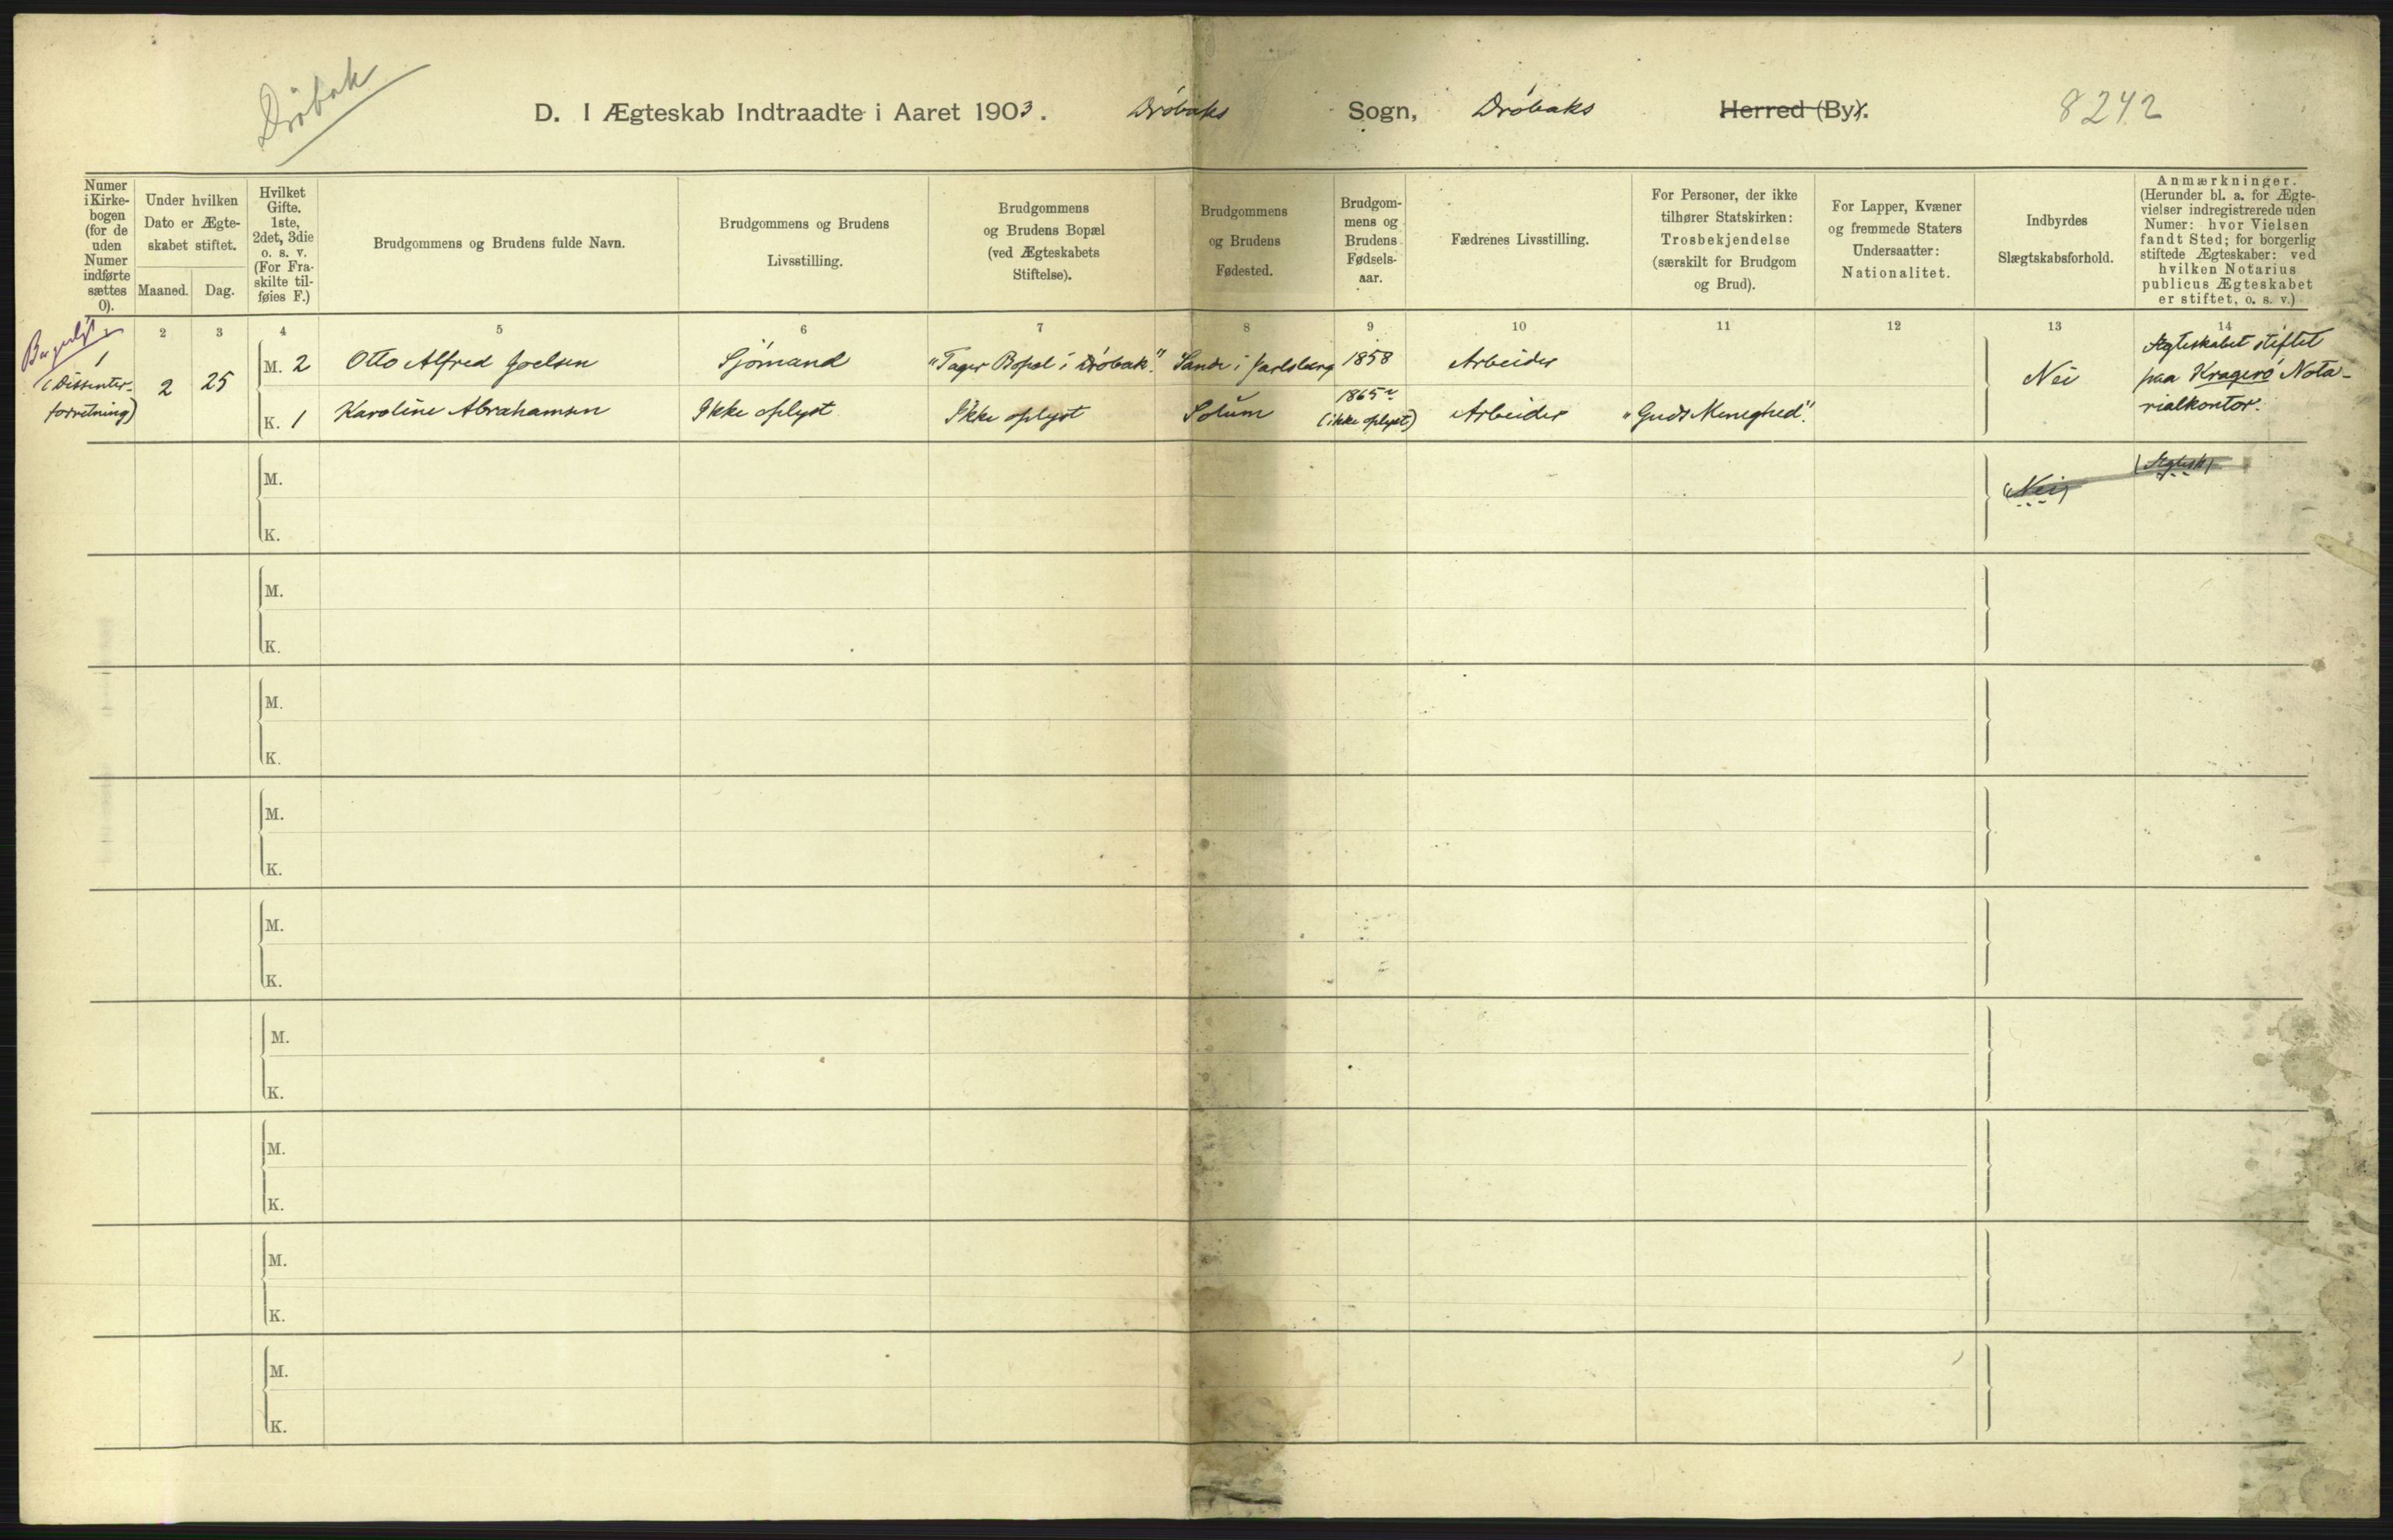 Dröbak
D. I Ægteskab Indtraadte i Aaret 1903. Dröbaks Sogn, Dröbaks Herred (By). 8242
Numer i Kirkebogen (for de uden Numer indførte sættes 0).
Under hvilken Dato er Ægteskabet stiftet.
Maaned. Dag.
Hvilket Gifte. 1ste, 2det, 3die o. s. v. (For Fraskilte tilføies F.)
Brudgommens og Brudens fulde Navn.
Brudgommens og Brudens Livsstilling.
Brudgommens og Brudens Bopæl (ved Ægteskabets Stiftelse).
Brudgommens og Brudens Fødested.
Brudgommens og Brudens Fødselsaar.
Fædrenes Livsstilling.
For Personer, der ikke tilhører Statskirken: Trosbekjendelse (særskilt for Brudgom og Brud).
For Lapper, Kvæner og fremmede Staters Undersaatter: Nationalitet.
Indbyrdes Slægtskabsforhold.
Anmærkninger. (Herunder bl. a. for Ægtevielser indregistrerede uden Numer: hvor Vielsen fandt Sted; for borgerlig stiftede Ægteskaber: ved hvilken Notarius publicus Ægteskabet er stiftet, o. s. v.)
1 2 3 4 5 6 7 8 9 10 11 12 13 14
Borgerligt
1 (Dissenterforretning) 2 25
M. 2 Otto Alfred Joelsen Sjömand "Tager Bopæl i Dröbak". Sande i Jarlsberg 1858 Arbeider
K. 1 Karoline Abrahamsen Ikke oplyst Ikke oplyst Solum 1865 (ikke oplyst) Arbeider "Guds Menighed".
Nei
Ægteskabet stiftet
paa Kragerö Nota-
rialkontor.
M. (Nei) (Ægtesk)
K.
M.
K.
M.
K.
M.
K.
M.
K.
M.
K.
M.
K.
M.
K.
M.
K.